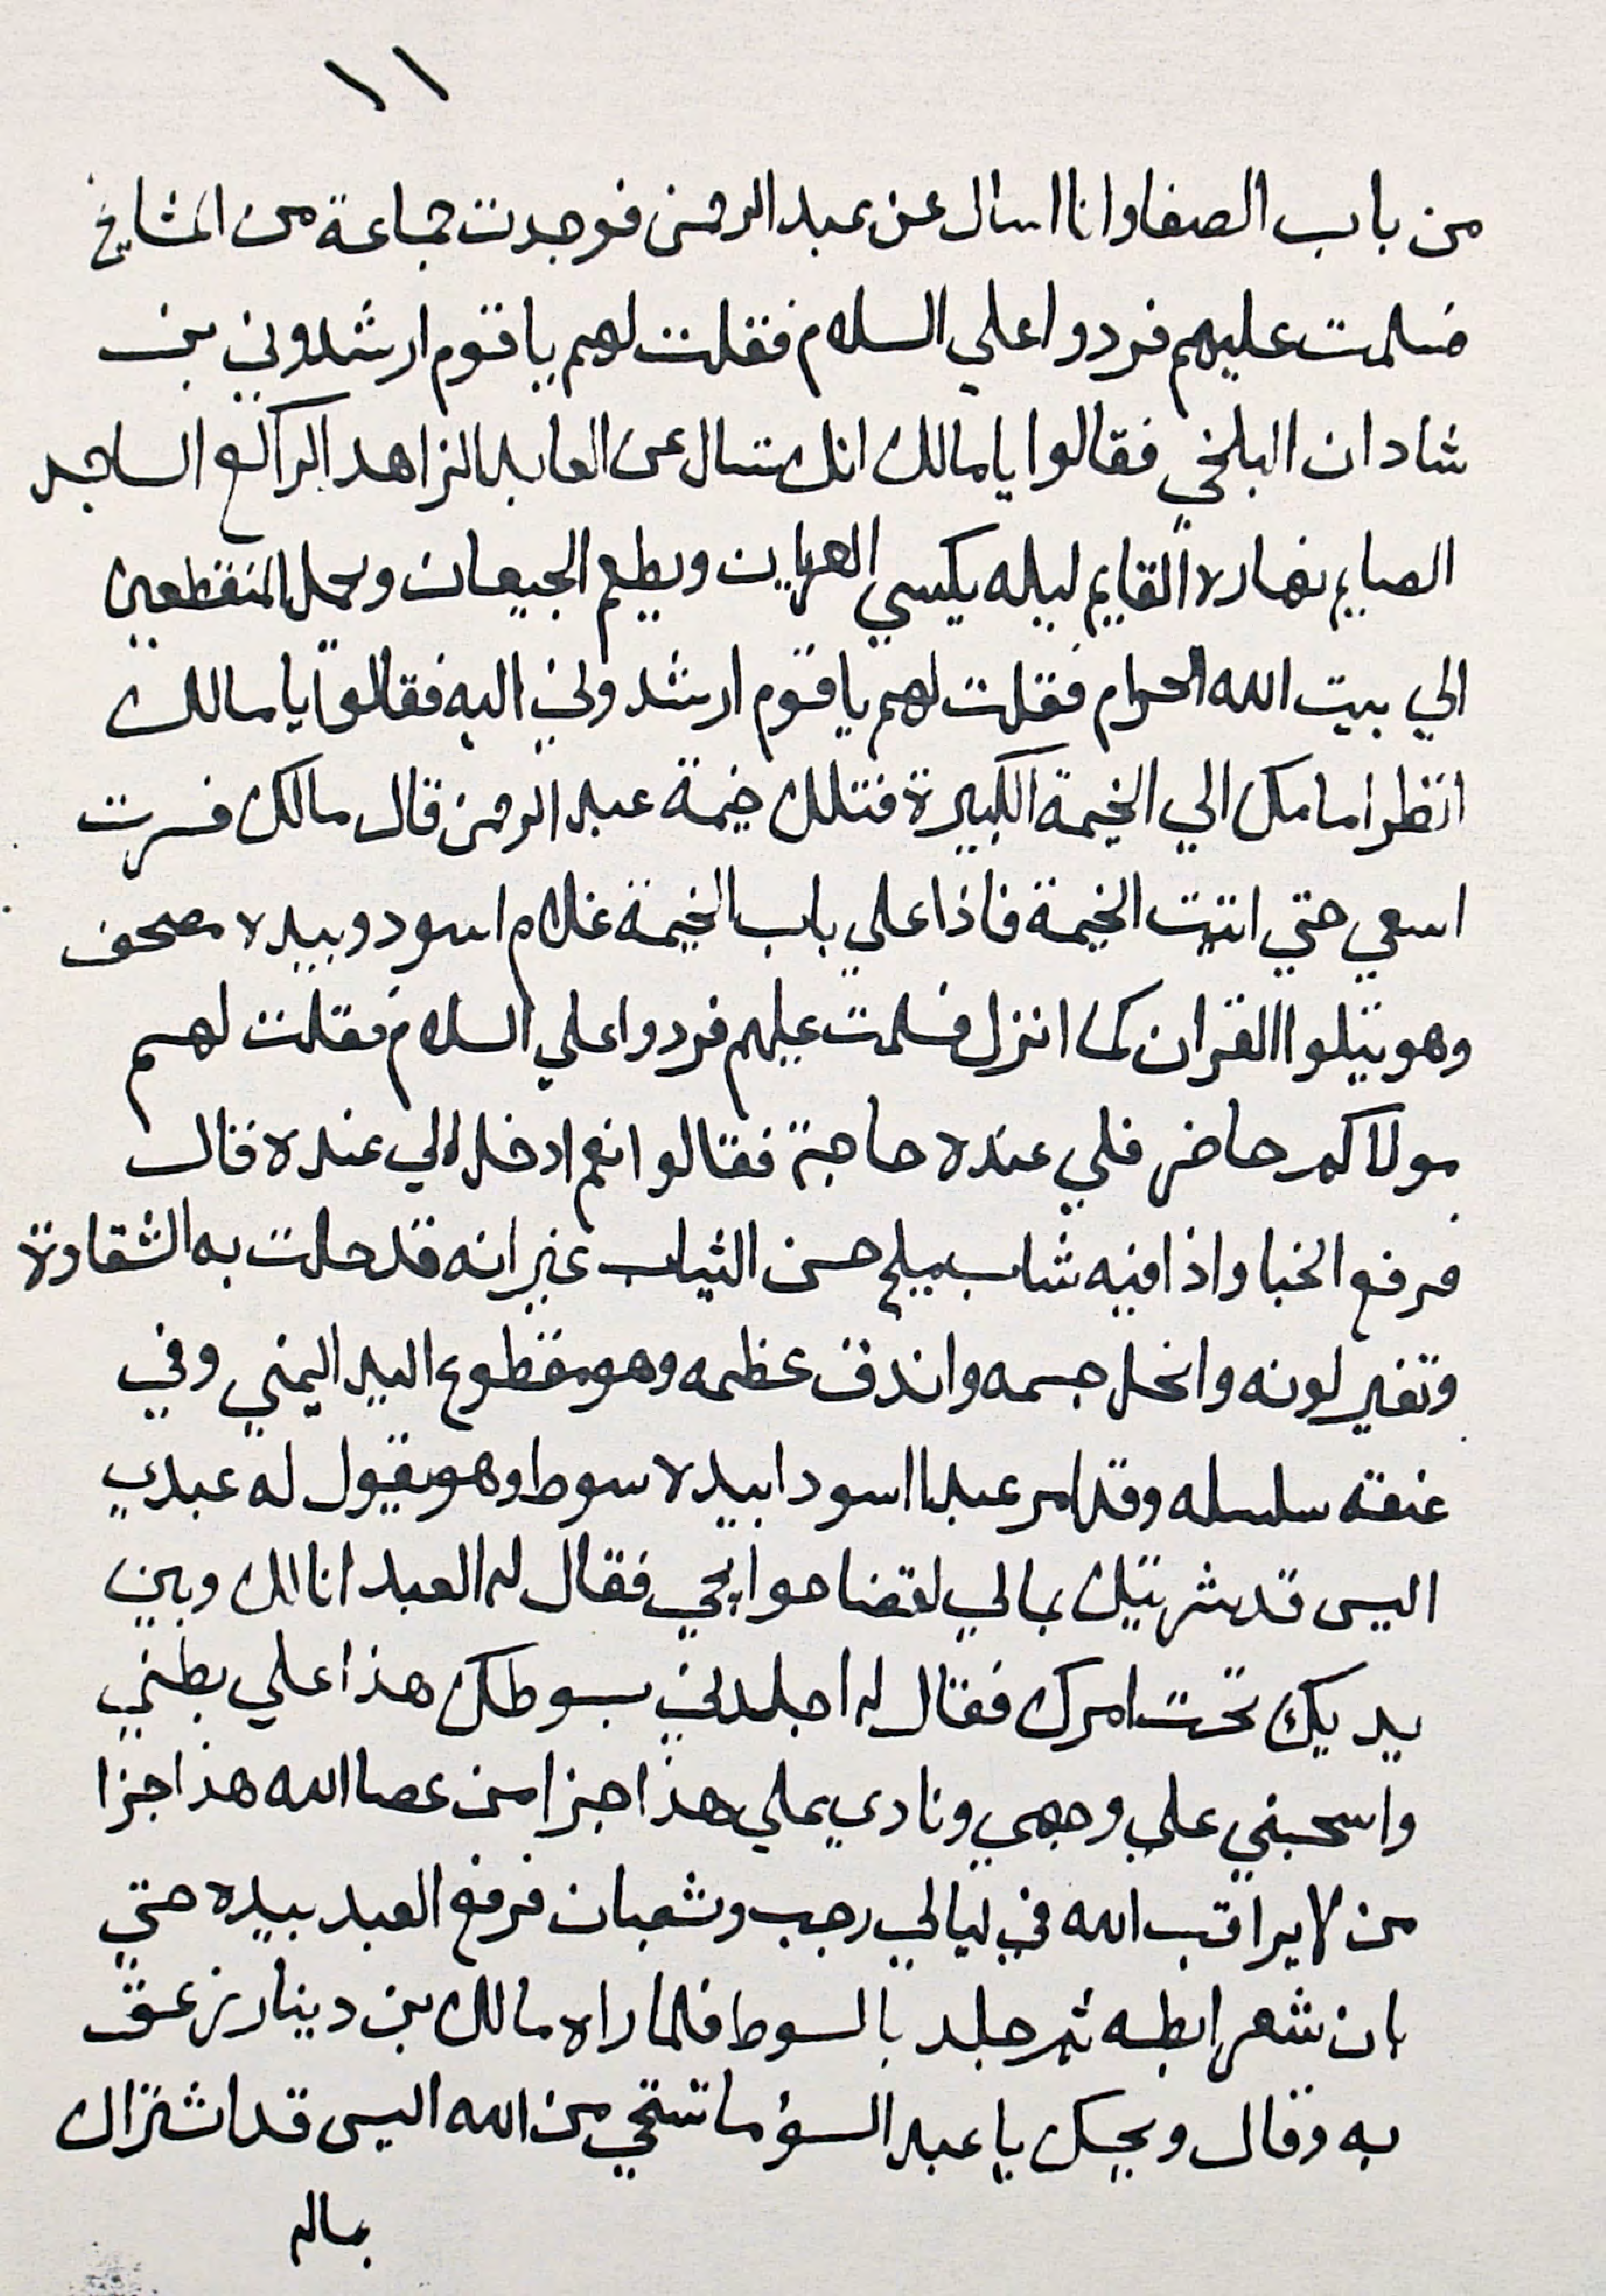 ١١
من باب الصفا وانا اسال عن عبد الرحمن فوجدت جماعة من المشايخ
فسلمت عليهم فردوا علي السلام فقلت لهم يا قوم ارشدوني بن
شادان البلخي فقالوا يا مالك انك تسال عن العابد الزاهد الراكع الساجد
الصايم نهاره القايم ليله يكسي العريان ويطعم الجيعان ويحمل المنقطعين
الي بيت الله الحرام فقلت لهم يا قوم ارشدوني اليه فقالوا يا مالك
انظر امامك الي الخيمة الكبيرة فتلك خيمة عبد الرحمن قال مالك فسرت
اسعي حتي اتيت الخيمة فاذا علي باب الخيمة غلام اسود وبيده مصحف
وهو يتلوا القران كما انزل فسلمت عليهم فردوا علي السلام فقلت لهم
مولاكم حاضر فلي عنده حاجة فقالوا نعم ادخل الي عنده قال
فرفع الخبا واذا فيه شاب مليح حسن الثياب غير انه قد حلت به الشقاوة
وتغير لونه وانحل جسمه واندق عظمه وهو مقطوع اليد اليمني وفي
عنقه سلسله وقد امر عبدا اسودا بيده سوط وهو يقول له عبدي
اليس قد شريتك بمالي لقضا حوايجي فقال له العبد انا لك وبين
يديك تحت امرك فقال له اجلدني بسوطك هذا علي بطني
واسحبني علي وجهي ونادي علي هذا جزا من عصا الله هذا جزا
من لا يراقب الله في ليالي رجب وشعبان فرفع العبد بيده حتي
بان شعر ابطه ثم جلد بالسوط فلما راه مالك بن دينار زعق
به وقال ويحك يا عبد السؤ ما تستحي من الله اليس قد اشتراك
بماله